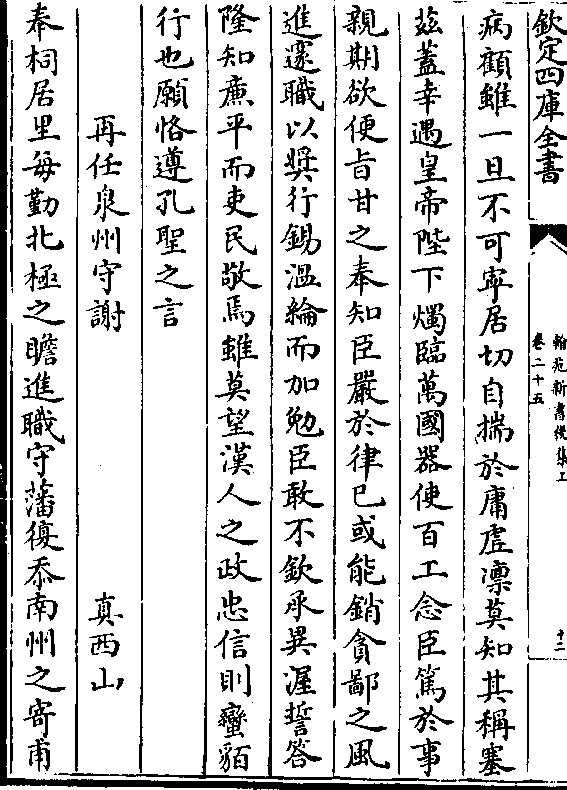 欽定四庫全書
翰苑新書後集上
卷二十五
十二
病顧雖一旦不可寧居切自揣於庸虛凛莫知其稱塞
茲蓋幸遇皇帝陛下燭臨萬國器使百工念臣篤於事
親期欲便㫖甘之奉知臣嚴於律已或能銷貪鄙之風
進邃職以奨行錫溫綸而加勉臣敢不欽承異渥誓答
隆知亷平而吏民敬焉雖莫望漢人之政忠信則蠻貊
行也願恪遵孔聖之言
再任泉州守謝
真西山
奉祠居里每勤北極之瞻進職守藩復忝南州之寄甫